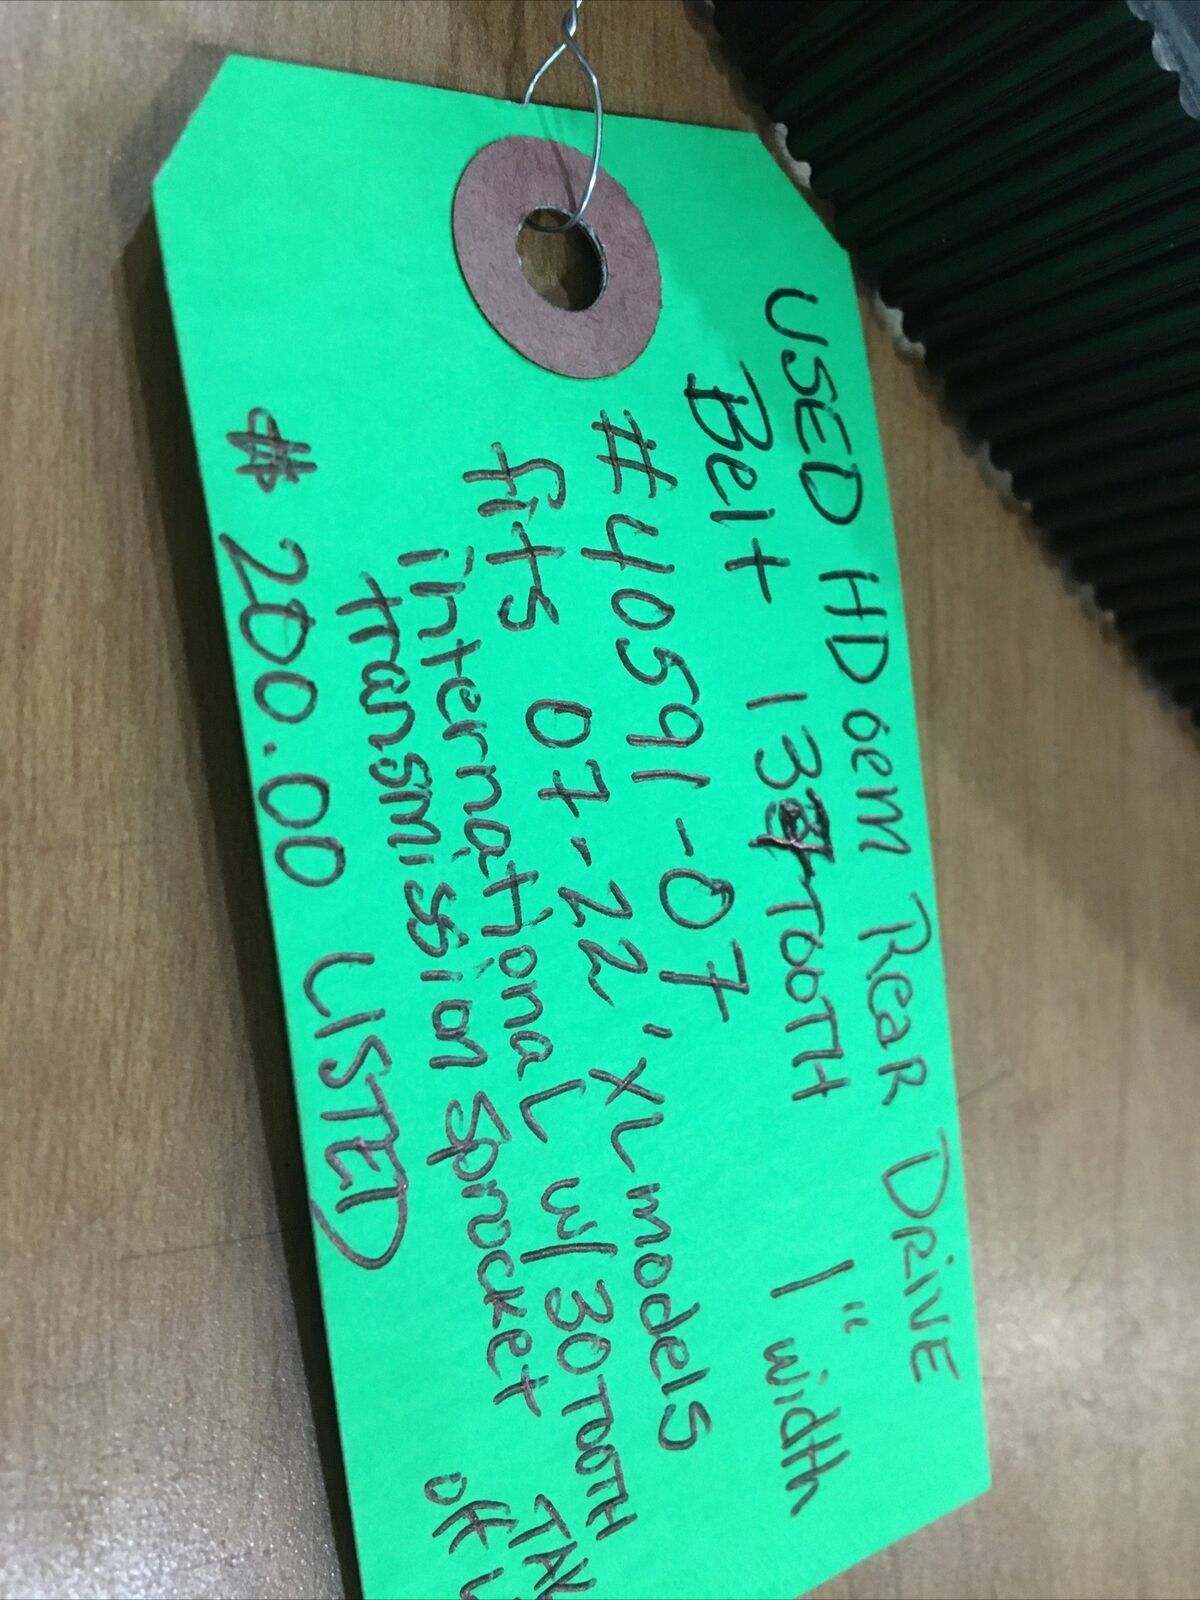 USED HD oem Rear DRIVE
Belt 137 TOOTH 1" width
#40591-07
fits 07-22' XL models
international w/ 30 TOOTH
transmission sprocket
off
$ 200.00 LISTED